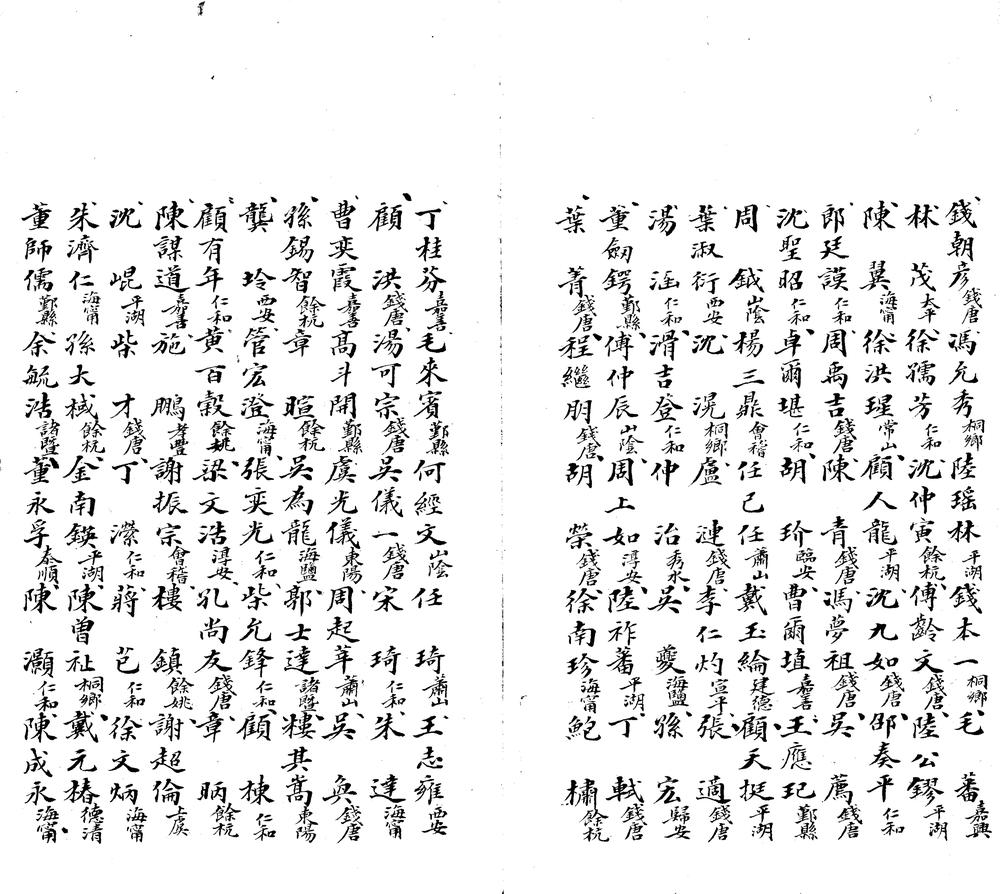 錢朝彥錢唐馮允秀桐鄉陸瑶林平湖錢本一桐鄉毛蕃嘉興
林茂太平徐孺芳仁和沈仲寅餘杭傅齡文錢唐陸公鏐平湖
陳翼海甯徐洪瑆常山顧人龍平湖沈九如錢唐邵奏平仁和
郎廷謨仁和周禹吉錢唐陳青錢唐馮夢祖錢唐吳薦錢唐
沈聖昭仁和卓爾堪仁和胡玠臨安曹爾埴嘉善王應玘鄞縣
周鉞山陰楊三鼎會稽任己任蕭山戴玉綸建德顧天挺平湖
葉淑衍西安沈滉桐鄉盧漣錢唐李仁灼宣平張適錢唐
湯㴠仁和滑吉登仁和仲治秀水吳夔海鹽孫宏歸安
董劒鍔鄞縣傅仲辰山陰周上如淳安陸祚蕃平湖丁軾錢唐
葉菁錢唐程繼朋錢唐胡榮錢唐徐南珍海甯鮑橚餘杭
丁桂芬嘉善毛來賓鄞縣何經文山陰任琦蕭山王志雍西安
顧洪錢唐湯可宗錢唐吳儀一錢唐宋琦仁和朱達海甯
曹奕霞嘉善高斗開鄞縣虞光儀東陽周起莘蕭山吳奐錢唐
孫錫智餘杭章暄餘杭吳為龍海鹽郭士達諸暨樓其嵩東陽
龔坽西安管宏澄海甯張奕光仁和柴允鋒仁和顧棟仁和
顧有年仁和黃百穀餘姚梁文浩淳安孔尚友錢唐章昞餘杭
陳謀道嘉善施鵬孝豐謝振宗會稽樓鎮餘姚謝超倫上虞
沈崐平湖柴才錢唐丁瀠仁和蔣芑仁和徐文炳海甯
朱濟仁海甯孫大棫餘杭金南鍈平湖陳曾祉桐鄉戴元椿德清
董師儒鄞縣余毓浩諸暨董永孚泰順陳灝仁和陳成永海甯